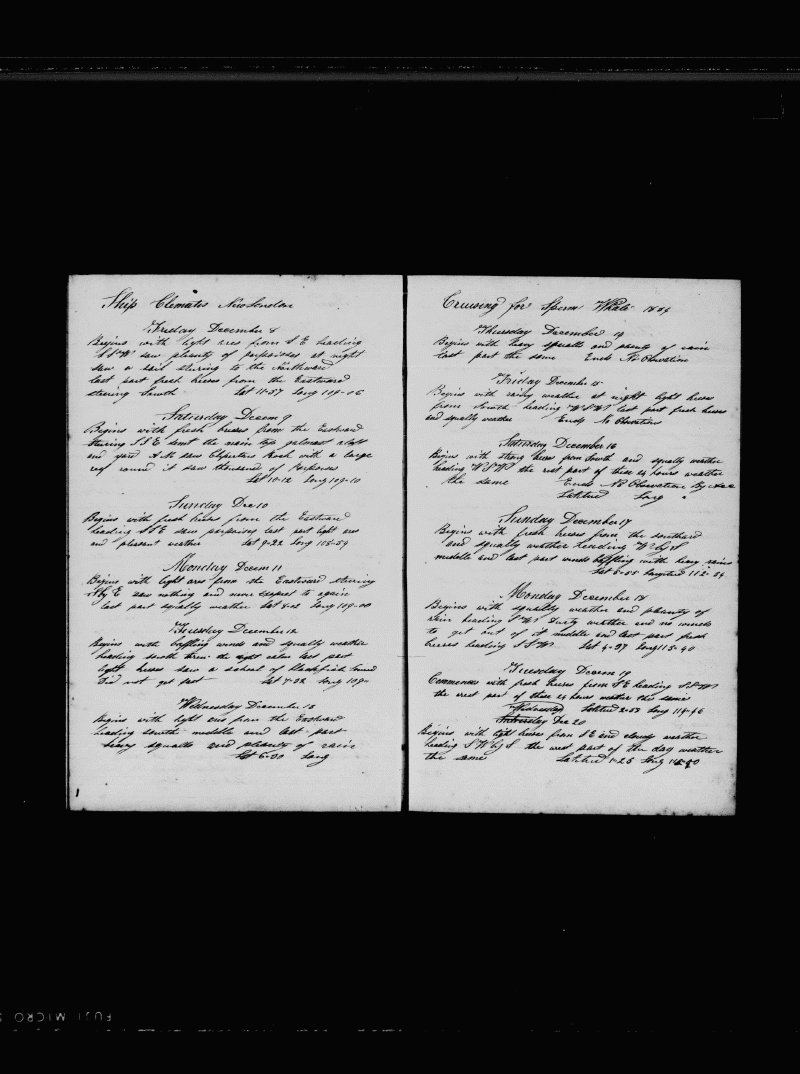 Ship Clematis New London
Friday December 8
Begins with light ares from S E heading
S S W saw plenty of porpoises at night
saw a sail stearing to the Northward
last part fresh breses from the Eastward
stearing South Lat 11-57 Long 109-06
Saturday Decem 9
Begins with fresh breses from the Eastward
stearing S S E sent the main top galnant aloft
and yard A.M. saw Cliperton Rock with a large
reef round it saw thousand of Porpoises
Lat 10-12 Long 109-10
Sunday Dec 10
Begins with fresh breses from the Eastward
heading S S E saw porpoises last part light ares
and plesent weather Lat 9-22 Long 108-59
Monday Decem 11
Begins with light ares from the Eastward stearing
S by E saw nothing and never expect to again
last part squally weather Lat 8-02 Long 109-00
Tuesday December 12
Begins with baffling winds and squally weather
heading south threw the night calm last part
light breses saw a school of blackfish lowerd
Did not get fast Lat 7-32 Long 109-
Wednesday December 13
Begins with light ares from the Eastward
heading south middle and last part
heavy squalls and plenty of rain
Lat 6-30 Long
Cruising for Sperm Whale
Thursday December 14
Begins with heavy squalls and plenty of rain
last part the same Ends No Obsevation
Friday December 15
Begins with rainy weather at night light breses
from South heading W S W last part fresh breses
and squally weather Ends No Obsevation
Saturday December 16
Begins with strong breses from South and squally weather
heading W S W the rest part of these 24 hours weather
the same Ends No Observation By
Latitud Long "
Sunday December 17
Begins with fresh breses from the southard
and squally weather heading W by S
middle and last part winds baffling with heavy rains
Lat 5-55 Longitud 112-54
Monday December 18
Begins with squally weather and plenty of
rain heading S W Durty weather and no winds
to get out of it middle and last part fresh
breeses heading S S W Lat 4-37 Long 113-40
Tuesday Decem 19
Commences with fresh breeses from S E heading S S W
the rest part of these 24 hours weather this same
Wednesday Latitud 2-53 Long 114-46
Saturday Dec 20
Begins with light breses from S E and cloudy weather
heading S W by S the rest part of the day weather
the same Latitud 1-25 Long
FUJI MICRO